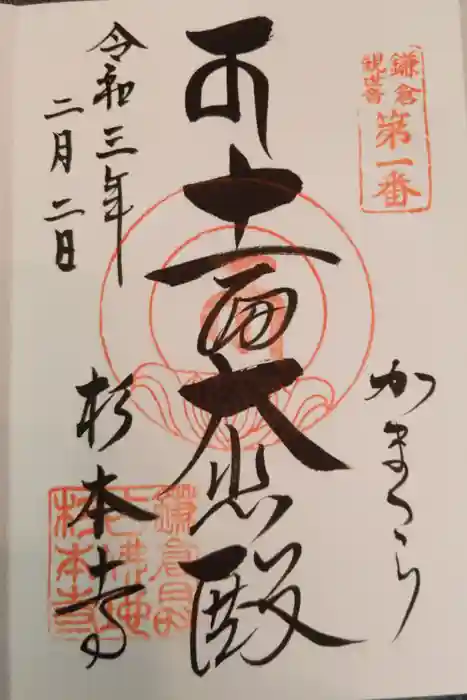 鎌倉
観世音
第一番
かまくら
十一面大悲殿
令和三年
二月二日
杉本寺